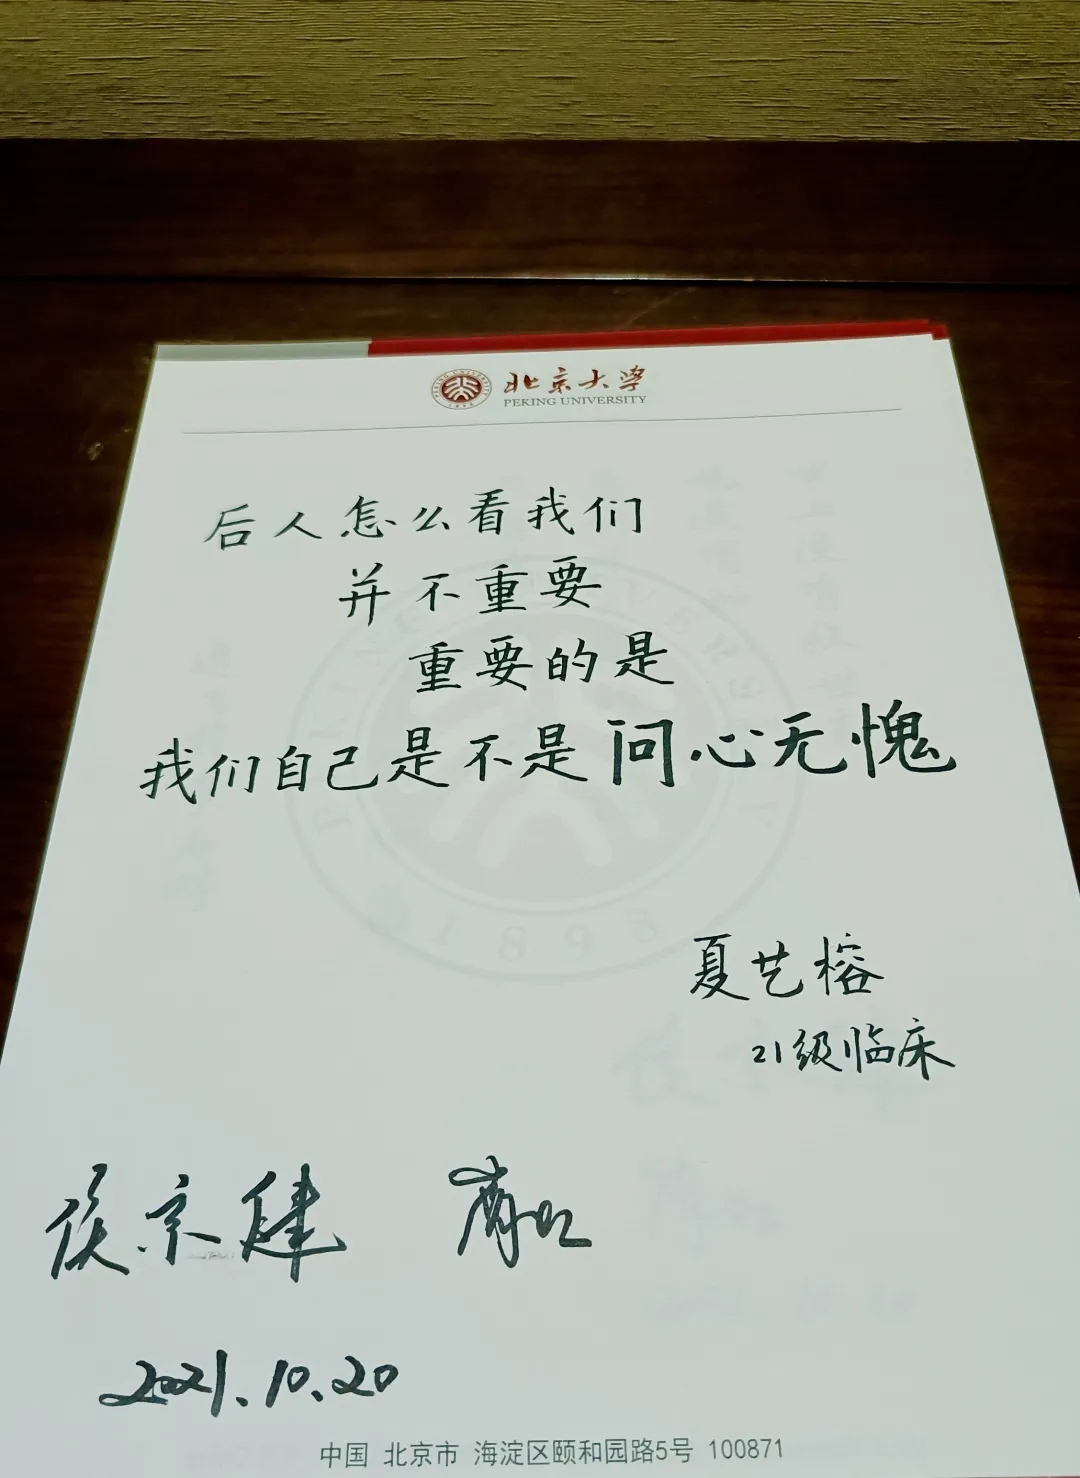 北京大学
PEKING UNIVERSITY
后人怎么看我们
并不重要
重要的是
我们自己是不是问心无愧
夏艺榕
21级临床
侯京健
2021.10.20
中国 北京市 海淀区颐和园路5号 100871